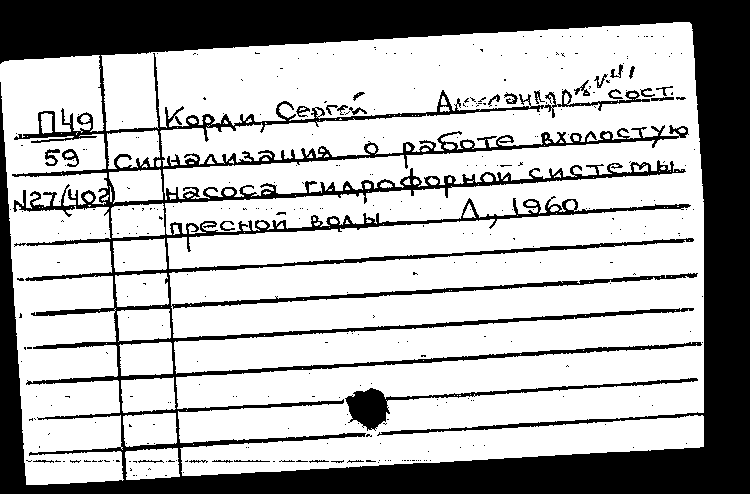 П49 Корди, Сергей Александрович, сост.
59 Сигнализация о работе вхолостую
N27(402) насоса гидрофорной системы
пресной воды Л., 1960